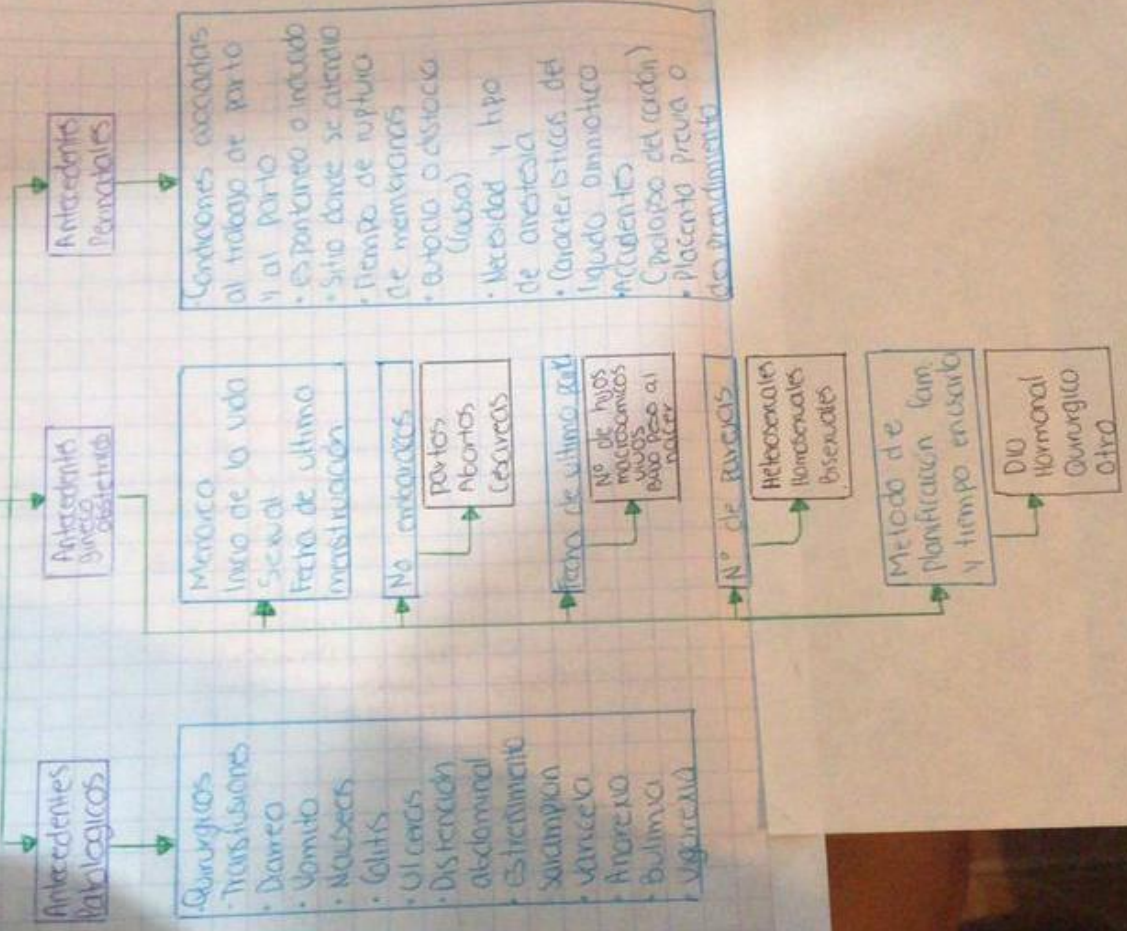 Antecedentes
Patologicos
• Quirurgicos
• Transfusiones
• Diarrea
• Vomito
• Nauseas
• Colitis
• Ulceras
• Distención
abdominal
• Estreñimiento
Sarampion
• Varicela
• Anorexia
• Bulimia
• Vigorexia
Antecedentes
gineco
obstetricos
Menarca
Inicio de la vida
Sexual
Fecha de ultima
menstruación
No embarazos
partos
Abortos
Cesareas
Fecha de ultimo parto
Nº de hijos
macrosomicos
vivos
Bajo Peso al
nacer
Nº de parejas
Heterosexuales
Homosexuales
Bisexuales
Metodo de
planificación fam.
y tiempo en usarlo
DIU
Hormonal
Quirurgico
Otro
Antecedentes
Perinatales
• Condiciones asociadas
al trabajo de parto
y al parto
• espontaneo o inducido
• Sitio donde se atendio
• Tiempo de ruptura
de membranas
• eutocia o distocia
(causa)
• Necesidad y tipo
de anestesia
• Caracteristicas del
liquido amniotico
• Accidentes
(prolapso del cordón)
• Placenta Previa o
desprendimiento